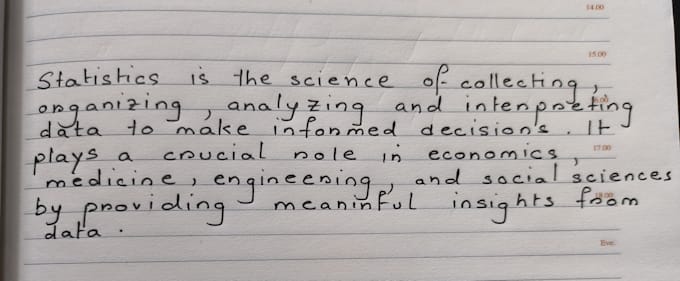 14.00
15.00
Statistics is the science of collecting,
organizing, analyzing and interpreting
data to make informed decisions. It
17.00
plays a crucial role in economics,
medicine, engineering, and social sciences
by providing meaninful insights from
data.
Eve.